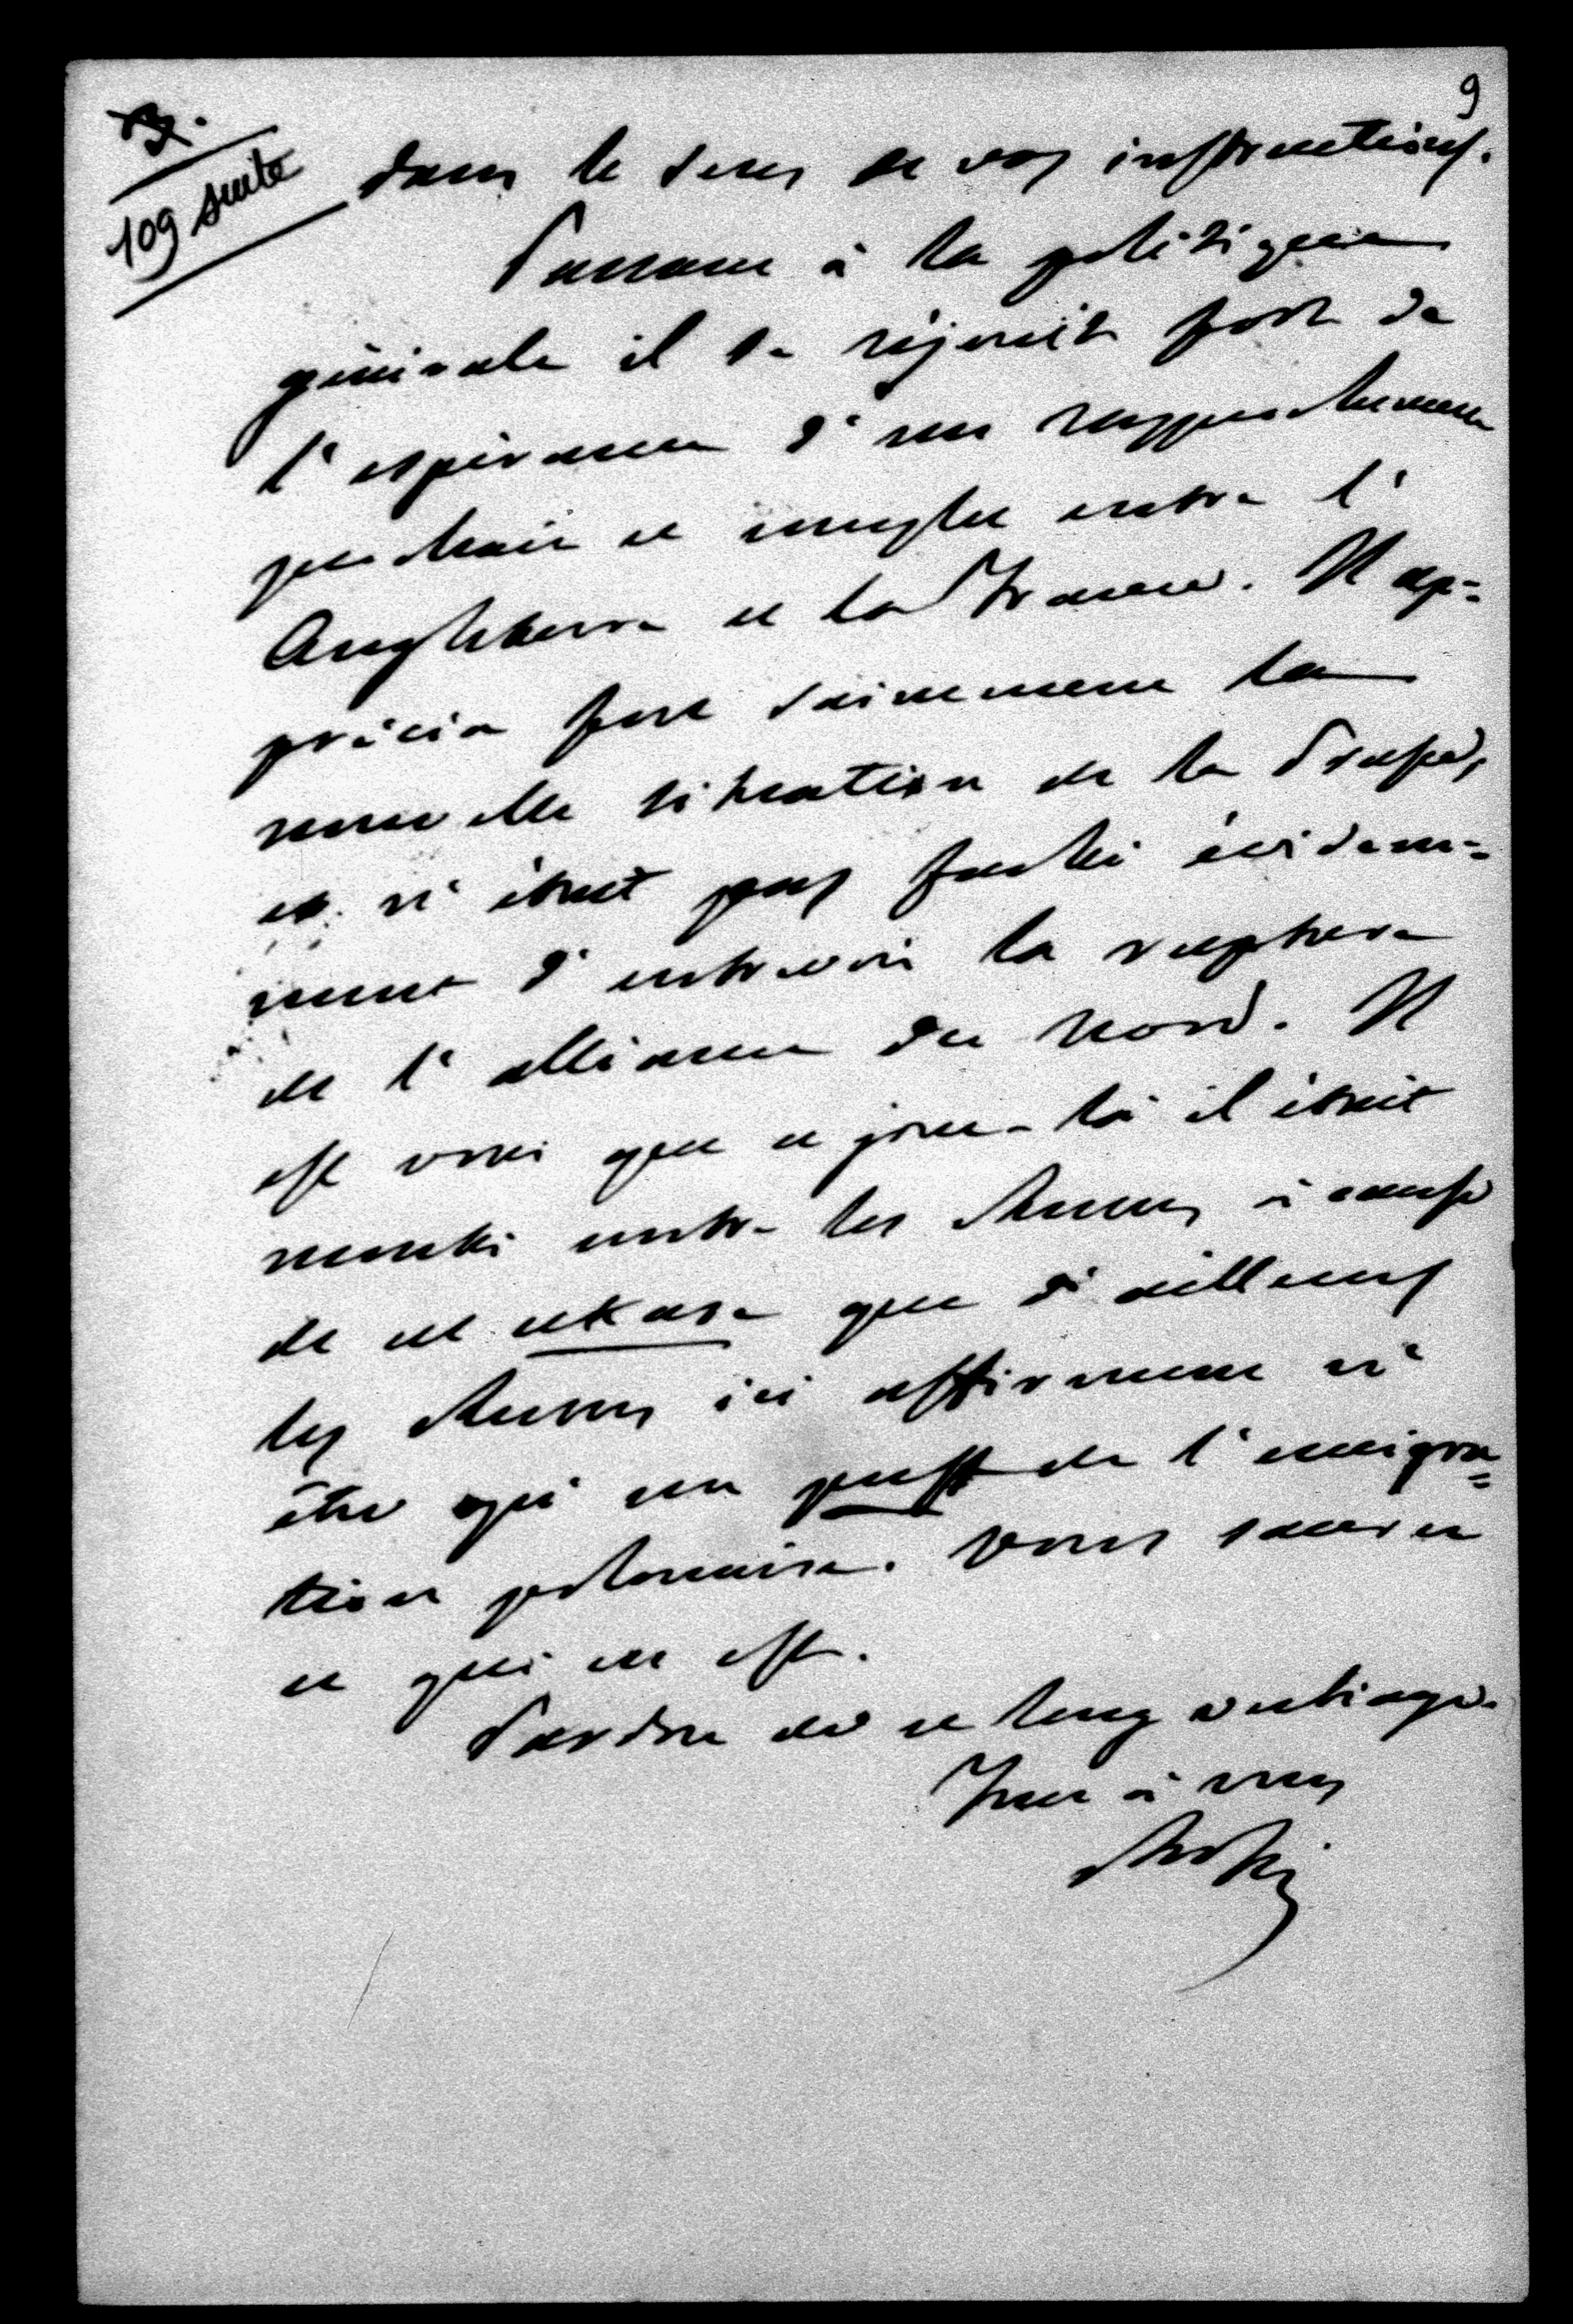 9
109 suite
dans le sens de vos instructions.
Passant à la politique
générale il se réjouit fort de
l'espérance d'un rapprochement
prochain et complet entre l'
Angleterre et la France. Il ap=
précia fort sainement la
nouvelle situation de la Prusse,
et n'était pas faché évidem=
ment d'entrevoir la rupture
de l'alliance du nord. Il
est vrai que ce jour-là il était
monté contre les Russes à cause
de cet ukase que d'ailleurs
les Russes ici affirment n'
être qu'un puff de l'emigra=
tion polonaise. Vous saurez
ce qui en est.
Pardon de ce long verbiage.
Tout à vous